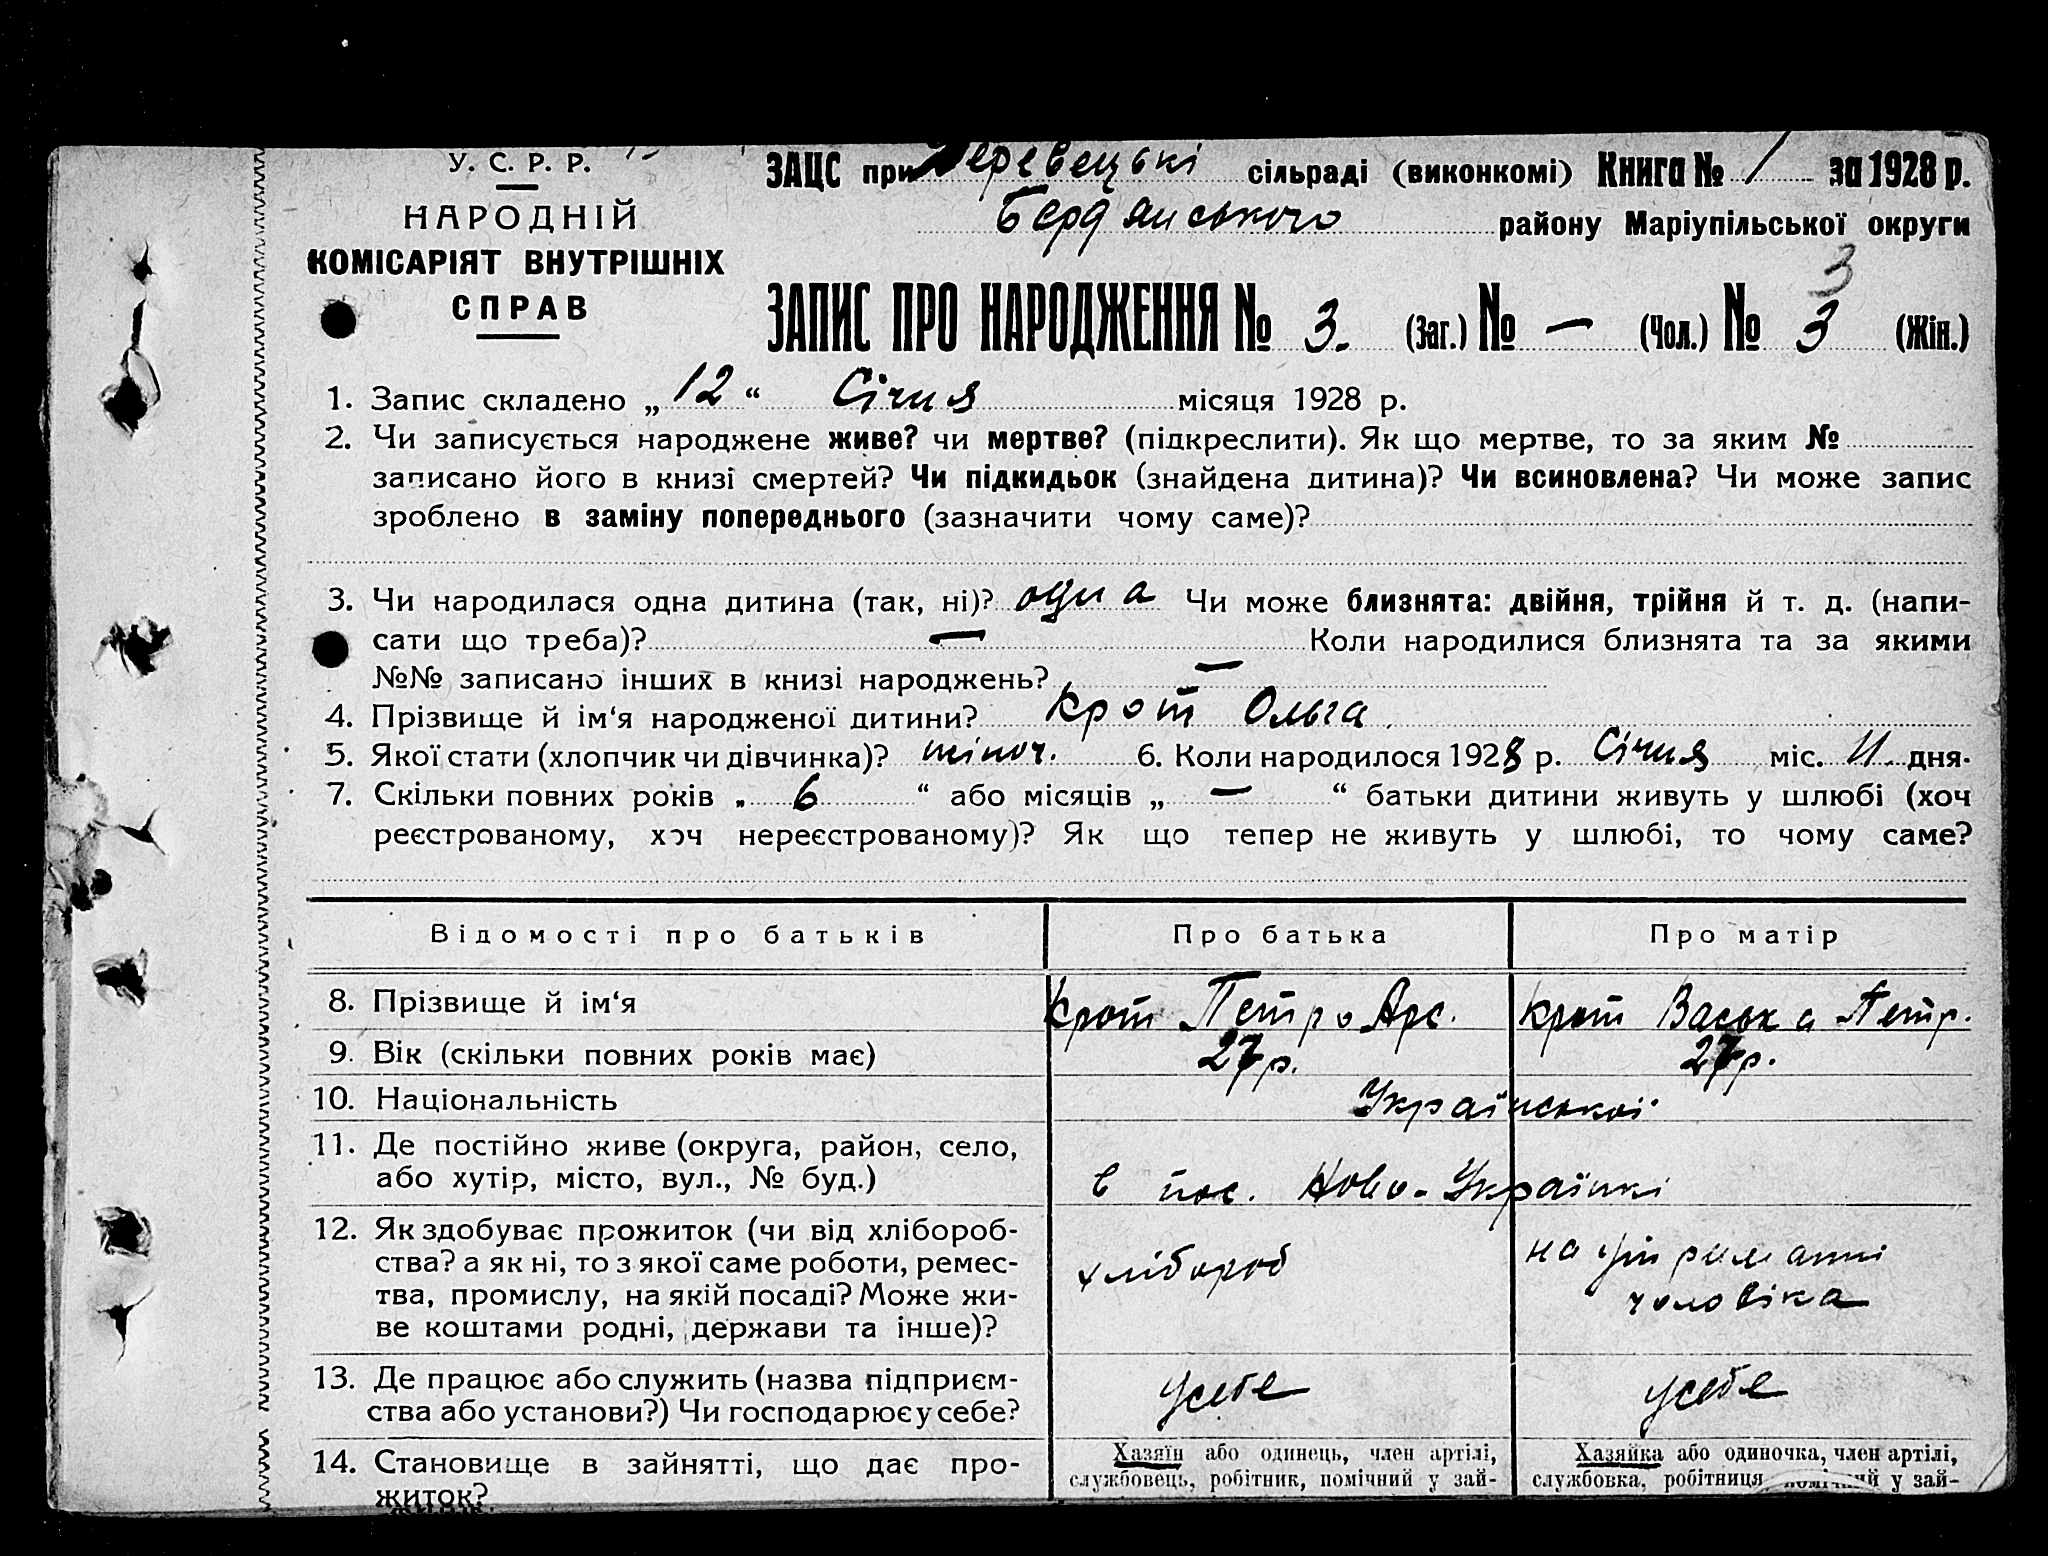 У. С. Р. Р.
НАРОДНІЙ
КОМІСАРІЯТ ВНУТРІШНІХ
СПРАВ
ЗАЦС при Деревецькі сільраді (виконкомі) Книга № 1 за 1928 р.
Бердянського району Маріупільської округи
3
ЗАПИС ПРО НАРОДЖЕННЯ № 3. (Заг.) № — (Чол.) № 3 (Жін.)
1. Запис складено „ 12 “ Січня місяця 1928 р.
2. Чи записується народжене живе? чи мертве? (підкреслити). Як що мертве, то за яким №
записано його в книзі смертей? Чи підкидьок (знайдена дитина)? Чи всиновлена? Чи може запис
зроблено в заміну попереднього (зазначити чому саме)?
3. Чи народилася одна дитина (так, ні)? одна Чи може близнята: двійня, трійня й т. д. (напи-
сати що треба)? — Коли народилися близнята та за якими
№№ записано інших в книзі народжень? —
4. Прізвище й ім‘я народженої дитини? Крот Ольга
5. Якої стати (хлопчик чи дівчинка)? жіноч. 6. Коли народилося 1928 р. Січня міс. 11. дня.
7. Скільки повних років „ 6 “ або місяців „ — “ батьки дитини живуть у шлюбі (хоч
реєстрованому, хоч нереєстрованому)? Як що тепер не живуть у шлюбі, то чому саме?
Відомості про батьків Про батька Про матір
8. Прізвище й ім‘я Крот Петро Арс. Крот Васька Петр.
9. Вік (скільки повних років має) 27 р. 27 р.
10. Національність Української
11. Де постійно живе (округа, район, село,
або хутір, місто, вул., № буд.) в пос. Ново-Українкі
12. Як здобуває прожиток (чи від хлібороб-
ства? а як ні, то з якої саме роботи, ремес-
тва, промислу, на якій посаді? Може жи-
ве коштами родні, держави та інше)?
хлібороб
на утриманні
чоловіка
13. Де працює або служить (назва підприєм-
ства або установи?) Чи господарює у себе?
усебе усебе
14. Становище в зайнятті, що дає про-
житок?
Хазяїн або одинець, член артілі,
службовець, робітник, помічний у зай-
Хазяйка або одиночка, член артілі,
службовка, робітниця, помічний у зай-